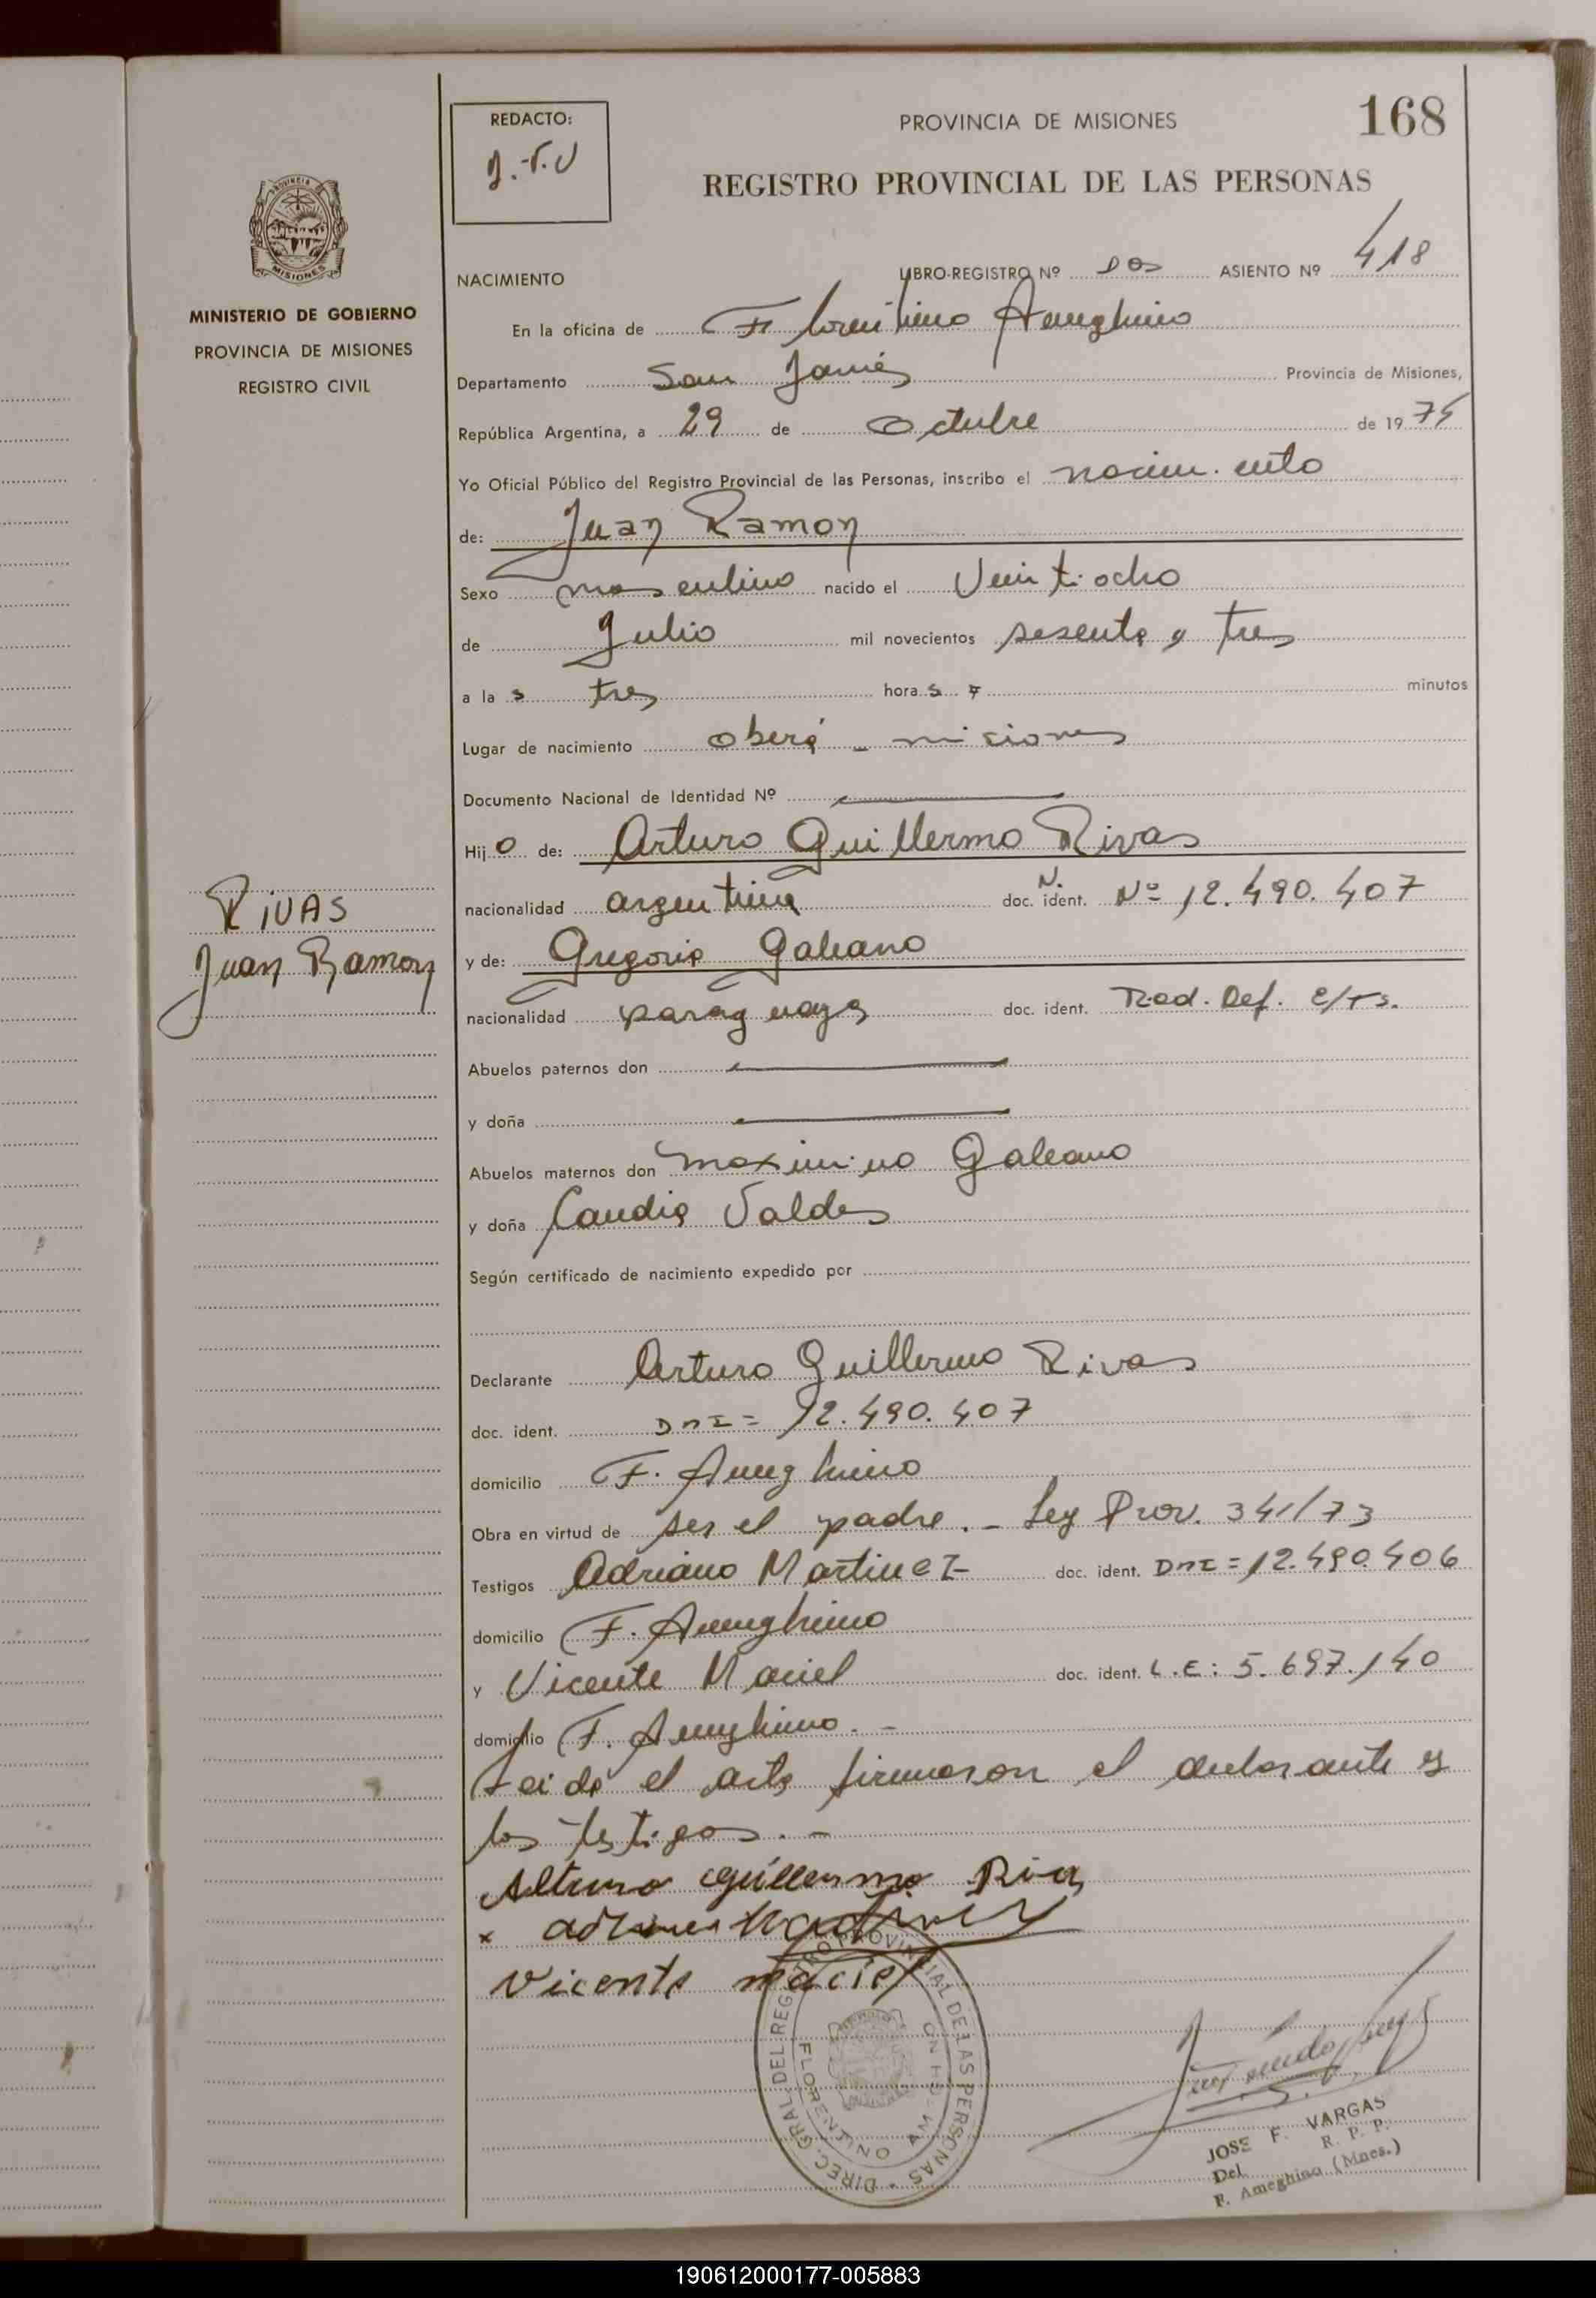 168
REDACTO:
J.F.V
PROVINCIA DE MISIONES
REGISTRO PROVINCIAL DE LAS PERSONAS
PROVINCIA
MISIONES
MINISTERIO DE GOBIERNO
PROVINCIA DE MISIONES
REGISTRO CIVIL
NACIMIENTO LIBRO-REGISTRO Nº dos ASIENTO Nº 418
En la oficina de Florentino Ameghino
Departamento San Javier Provincia de Misiones,
República Argentina, a 29 de Octubre de 1975
Yo Oficial Público del Registro Provincial de las Personas, inscribo el nacimiento
de: Juan Ramon
Sexo masculino nacido el Veintiocho
de Julio mil novecientos sesenta y tres
a la s tres hora s 7 minutos
Lugar de nacimiento oberá - misiones
Documento Nacional de Identidad Nº
Hijo de: Arturo Guillermo Rivas
nacionalidad argentina doc. N. ident. Nº 12.490.407
RIVAS
Juan Ramon
y de: Gregoria Galeano
nacionalidad paraguaya doc. ident. Rad. Def. e/Ts.
Abuelos paternos don
y doña
Abuelos maternos don maximino Galeano
y doña Candia Valdes
Según certificado de nacimiento expedido por
Declarante Arturo Guillermo Rivas
doc. ident. DNI= 12.490.407
domicilio F. Ameghino
Obra en virtud de ser el padre.- Ley Prov. 341/73
Testigos Adriano Martinez doc. ident. DNI=12.490.406
domicilio F. Ameghino
y Vicente Maciel doc. ident. L.E: 5.697.140
domicilio F. Ameghino.-
Leida el acta firmaron el declarante y
los testigos.-
Alturo Guillermo Riva
x Martinez
Vicente maciel
DIREC. GRAL. DEL REGISTRO PROVINCIAL DE LAS PERSONAS
FLORENTINO AMEGHINO
JOSE F. VARGAS
Del. R. P. P.
F. Ameghino (Mnes.)
190612000177-005883